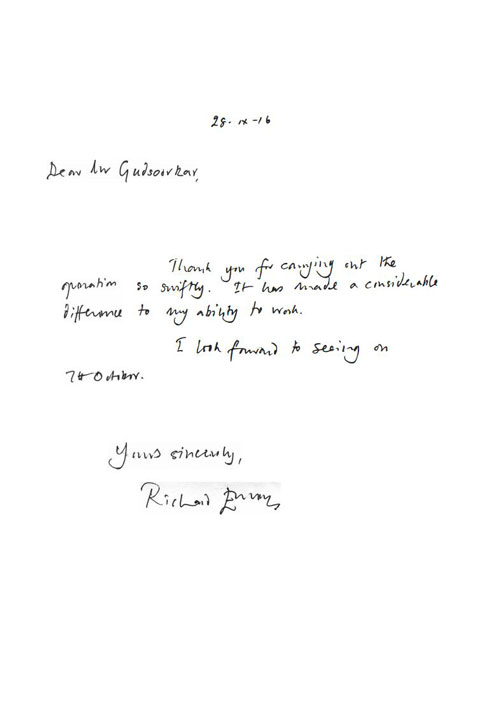 28-ix-16
Dear Mr Gudsoorkar,
Thank you for carrying out the
operation so swiftly. It has made a considerable
difference to my ability to work.
I look forward to seeing on
7th October.
Yours sincerely,
Richard